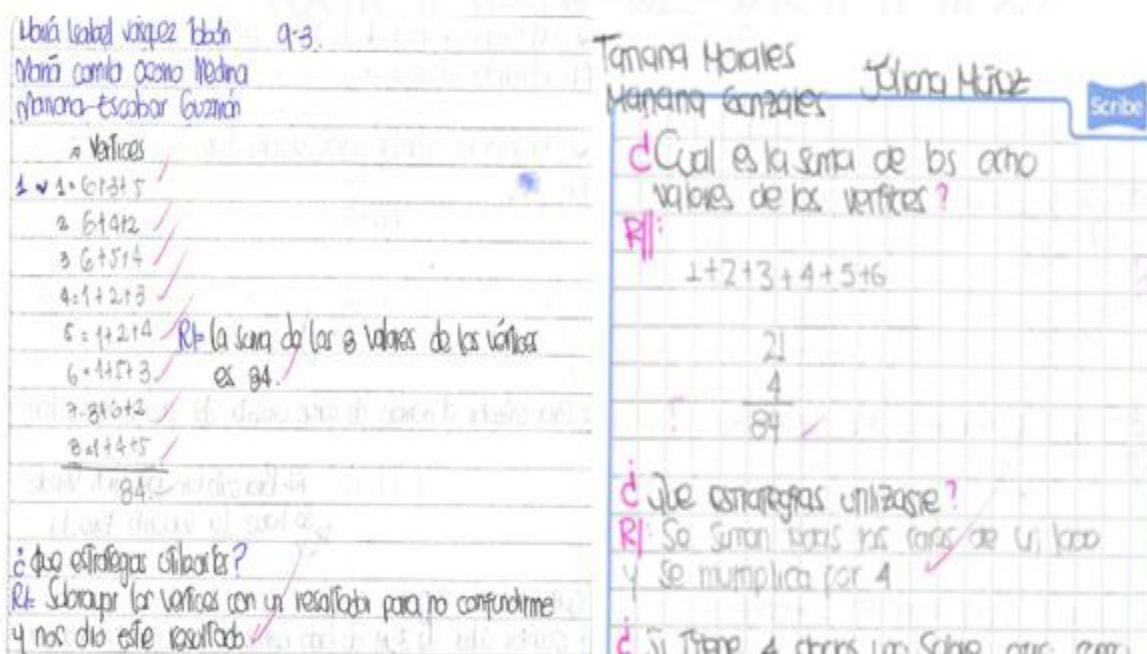 María Isabel Vásquez Tobón 9-3.
María camila Ocano Medina
Mariana Escobar Guzmán
Vertices
1 1= 6+3+5
2 6+4+2
3 6+5+4
4=1+2+3
5=1+2+4
6=1+5+3
R/= la suma de los 8 valores de los vértices
es 84.
7=3+6+2
8=1+4+5
84
¿Que estrategas utilizastes?
R/= Subrayar los vertices con un resaltador para no confundirme
y nos dio este resultado
Morales
Mariana Gonzales
Juliana Muñoz
Scribe
¿Cual es la suma de los ocho
valores de los vertices?
R//:
1+2+3+4+5+6
21
4
84
¿Que estrategias utilizaste?
R/: Se suman todas las caras de un lado
y se multiplica por 4
¿Si tiene 4 dados